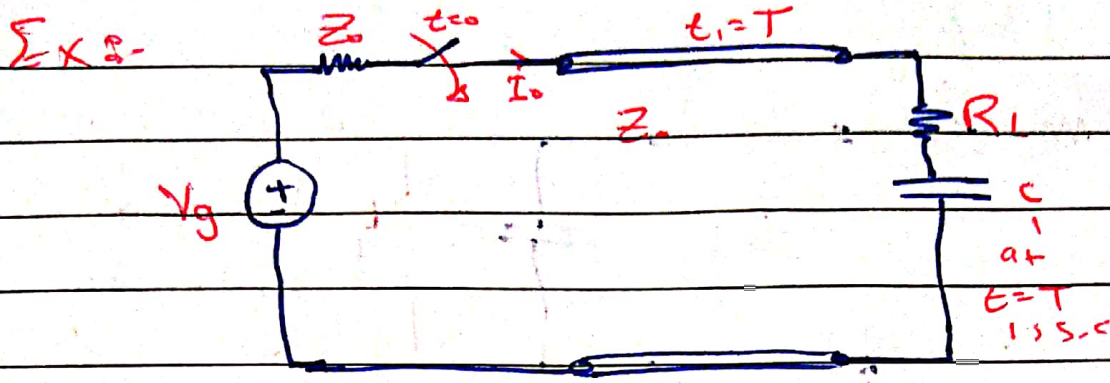 Ex :-
Z₀ t=0 t₁=T
I₀
Z₀
R L
Vg
+
-
C
at
t=T
is s.c